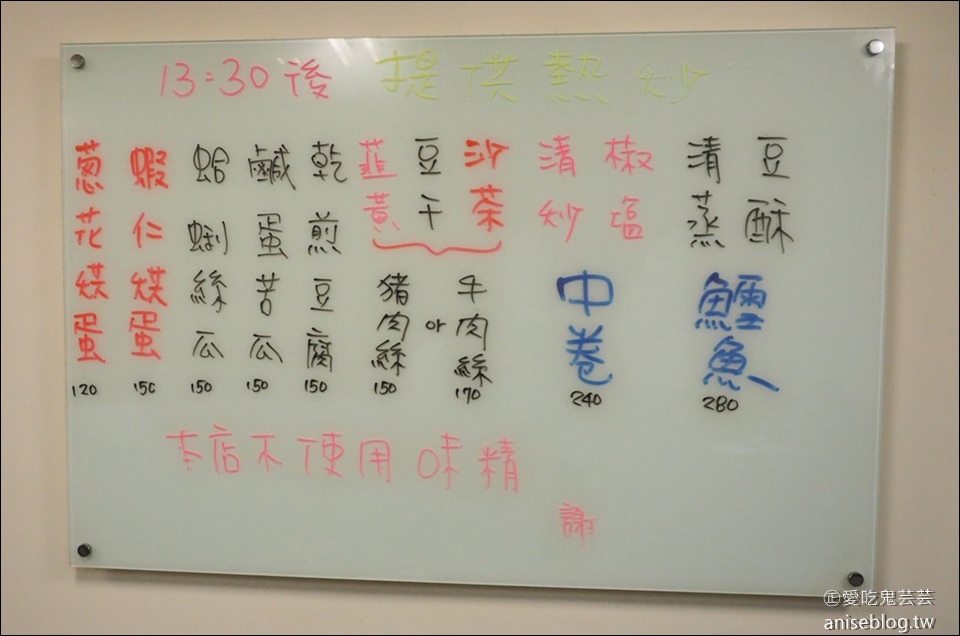 13:30後 提供熱炒
豆酥
清蒸
鱈魚
280
椒塩
清炒
中卷
240
沙茶
豆干
韮黃
牛肉絲
170
or
豬肉絲
150
乾煎豆腐
150
鹹蛋苦瓜
150
蛤蜊絲瓜
150
蝦仁烘蛋
150
蔥花烘蛋
120
本店不使用味精
謝
㊣愛吃鬼芸芸
aniseblog.tw